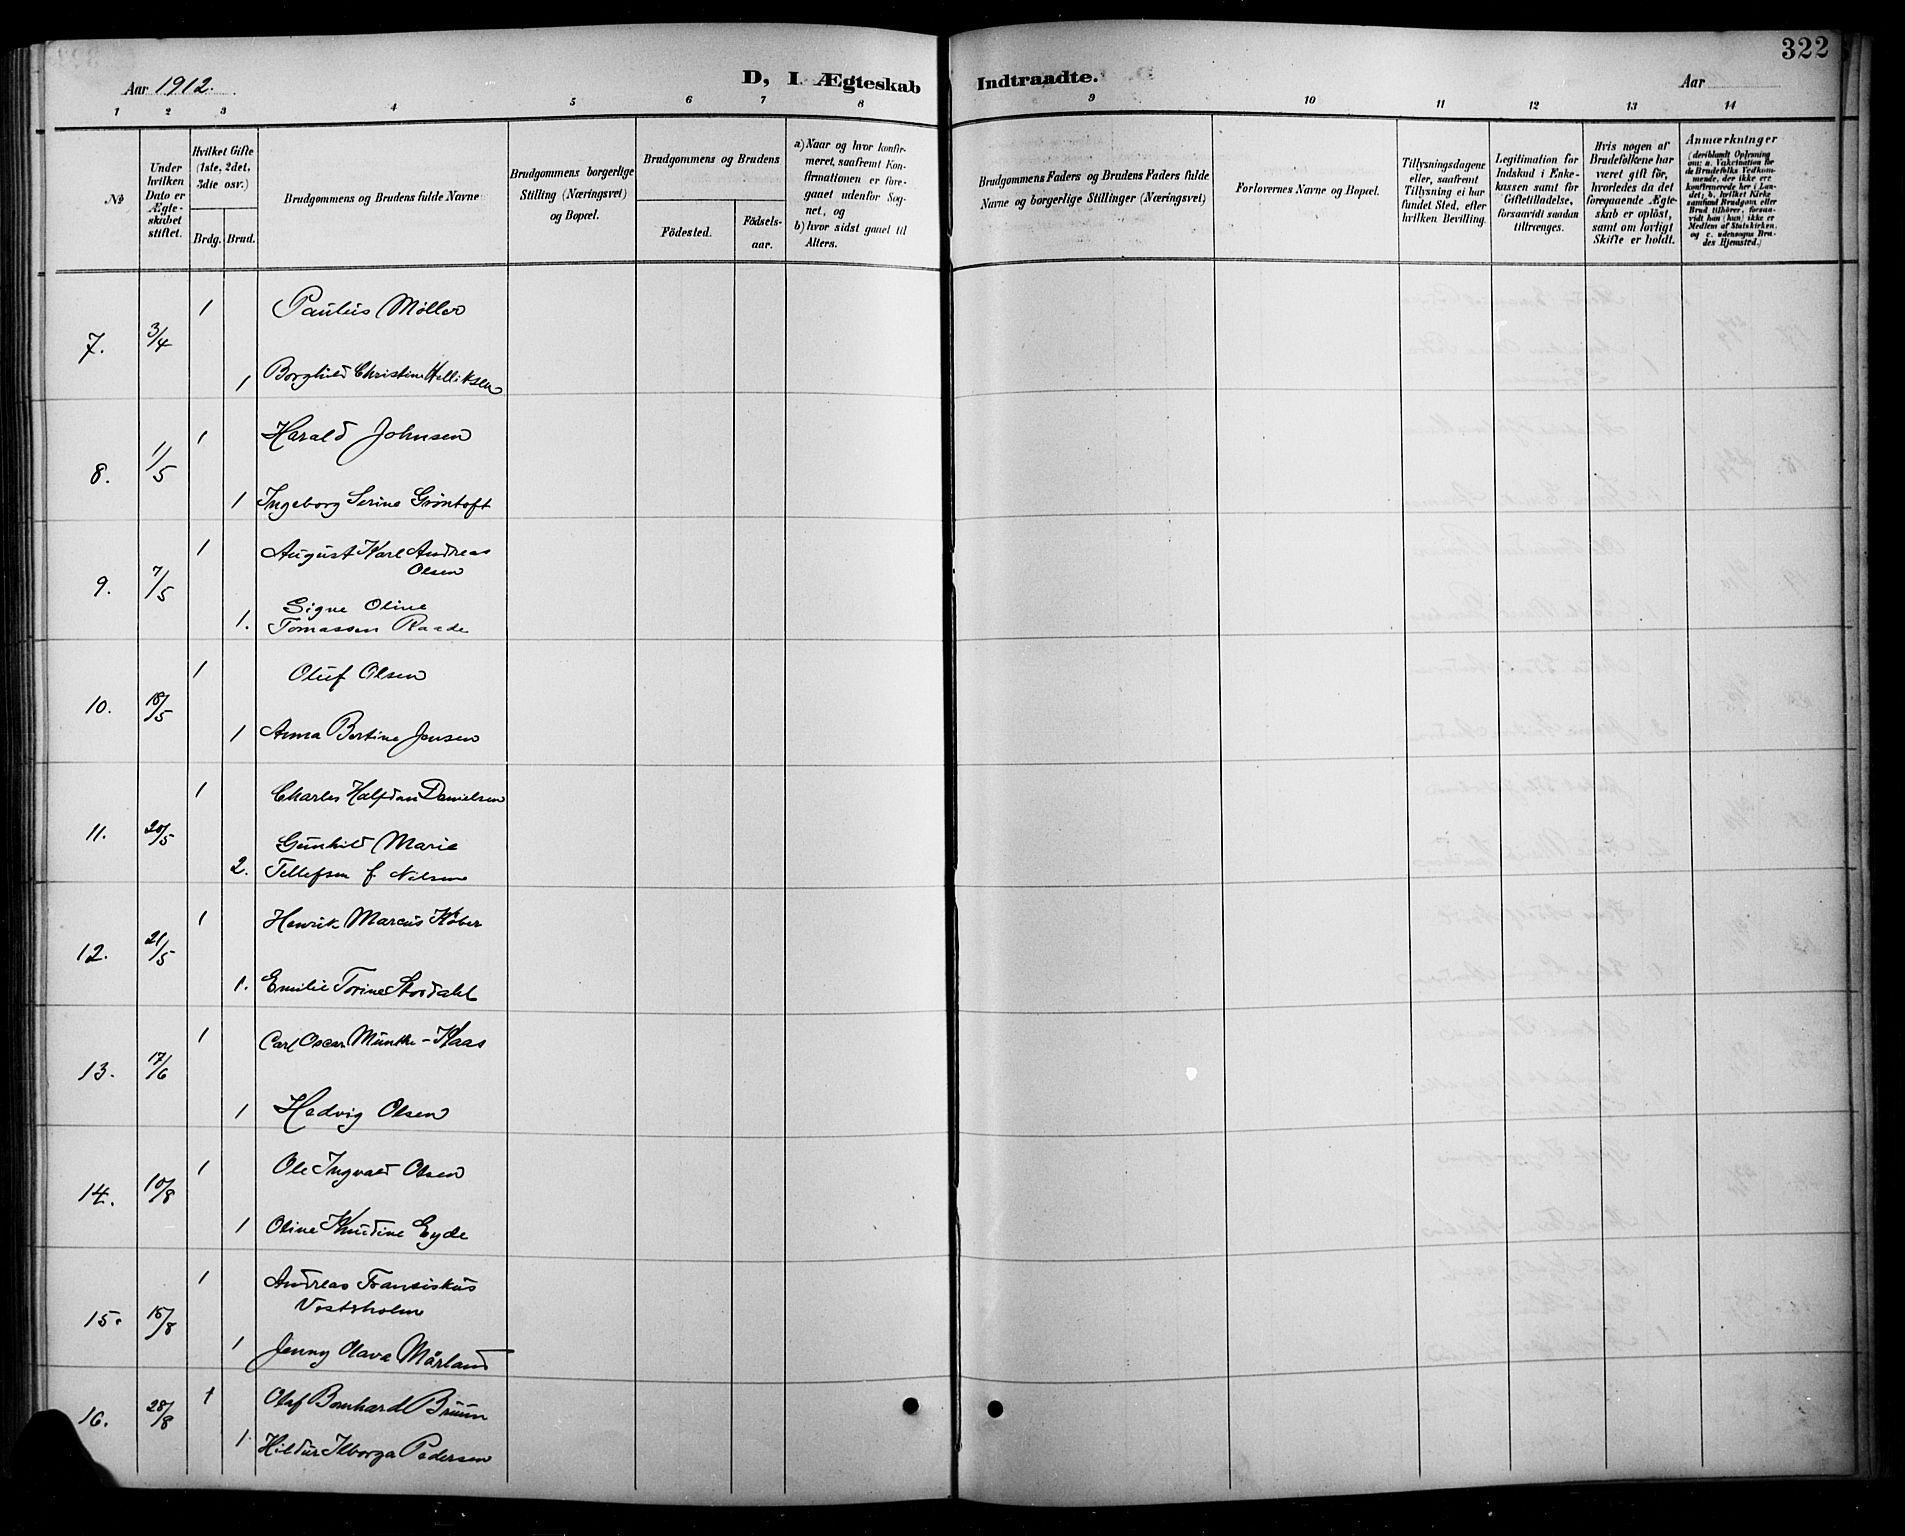 322
Aar 1912. D, I. Ægteskab Indtraadte. Aar
1 2 3 4 5 6 7 8 9 10 11 12 13 14
No
Under hvilken Dato er Ægteskabet stiftet.
Hvilket Gifte (1ste, 2det, 3die osv.)
Brdg. Brud.
Brudgommens og Brudens fulde Navne
Brudgommens borgerlige Stilling (Næringsvei) og Bopæl.
Brudgommens og Brudens
Födested.
Födselsaar.
a) Naar og hvor konfirmeret, saafremt Konfirmationen er foregaaet udenfor Sognet, og
b) hvor sidst gaaet til Alters.
Brudgommens Faders og Brudens Faders fulde Navne og borgerlige Stillinger (Næringsvei)
Forlovernes Navne og Bopæl.
Tillysningsdagene eller, saafremt Tillysning ei har fundet Sted, efter hvilken Bevilling.
Legitimation for Indskud i Enkekassen samt for Giftetilladelse, forsaavidt saadan tiltrænges.
Hvis nogen af Brudefolkene har været gift før, hvorledes da det foregaaende Ægteskab er oplöst, samt om lovligt Skifte er holdt.
Anmærkninger
(deriblandt Oplysning om: a. Vakcination for de Brudefolks Vedkommende, der ikke ere konfirmerede her i Landet; b. hvilket Kirkesamfund Brudgom eller Brud tilhörer, forsaavidt han (hun) ikke er Medlem af Statskirken, og c. udensogns Brudes Hjemsted.)
7. 3/4 1 Paulus Møller
1 Borghild Christine Helliksen
8. 1/5 1 Harald Johnsen
1 Ingeborg Serine Grøntoft
9. 7/5 1 August Karl Andreas
Olsen
Signe Oline
1. Tomassen Raade
10. 18/5 1 Oluf Olsen
1 Anna Bertine Jensen
11. 20/5 1 Charles Halfdan Danielsen
Gunhild Marie
2. Tellefsen f. Nilsen
12. 21/5 1 Henrik Marcus Køber
1. Emilie Torine Stordahl
13. 17/6 1 Carl Oscar Munthe-Kaas
1 Hedvig Olsen
14. 10/8 1 Ole Ingvald Olsen
1 Oline Knudine Eyde
15. 15/8 1 Andreas Fransiskus
Vesterholm
1 Jenny Olava Mårland
16. 28/8 1 Olaf Bernhard Bruun
1 Hildur Ilborga Pedersen